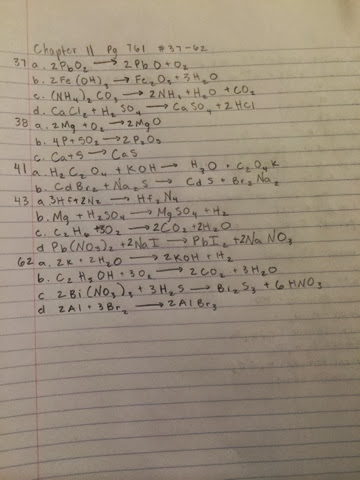 Chapter 11 Pg 761 #37-62
37 a. 2PbO₂ → 2PbO + O₂
b. 2Fe(OH)₃ → Fe₂O₃ + 3H₂O
c. (NH₄)₂CO₃ → 2NH₃ + H₂O + CO₂
d. CaCl₂ + H₂SO₄ → CaSO₄ + 2HCl
38 a. 2Mg + O₂ → 2MgO
b. 4P + 5O₂ → 2P₂O₅
c. Ca + S → CaS
41 a. H₂C₂O₄ + KOH → H₃O + C₂O₄K
b. CdBr₂ + Na₂S → CdS + Br₂Na₂
43 a 3Hf + 2N₂ → Hf₃N₄
b. Mg + H₂SO₄ → MgSO₄ + H₂
c. C₂H₆ + 3O₂ → 2CO₂ + 2H₂O
d Pb(NO₃)₂ + 2NaI → PbI₂ + 2NaNO₃
62 a. 2K + 2H₂O → 2KOH + H₂
b. C₂H₅OH + 3O₂ → 2CO₂ + 3H₂O
c 2Bi(NO₃)₃ + 3H₂S → Bi₂S₃ + 6HNO₃
d 2Al + 3Br₂ → 2AlBr₃